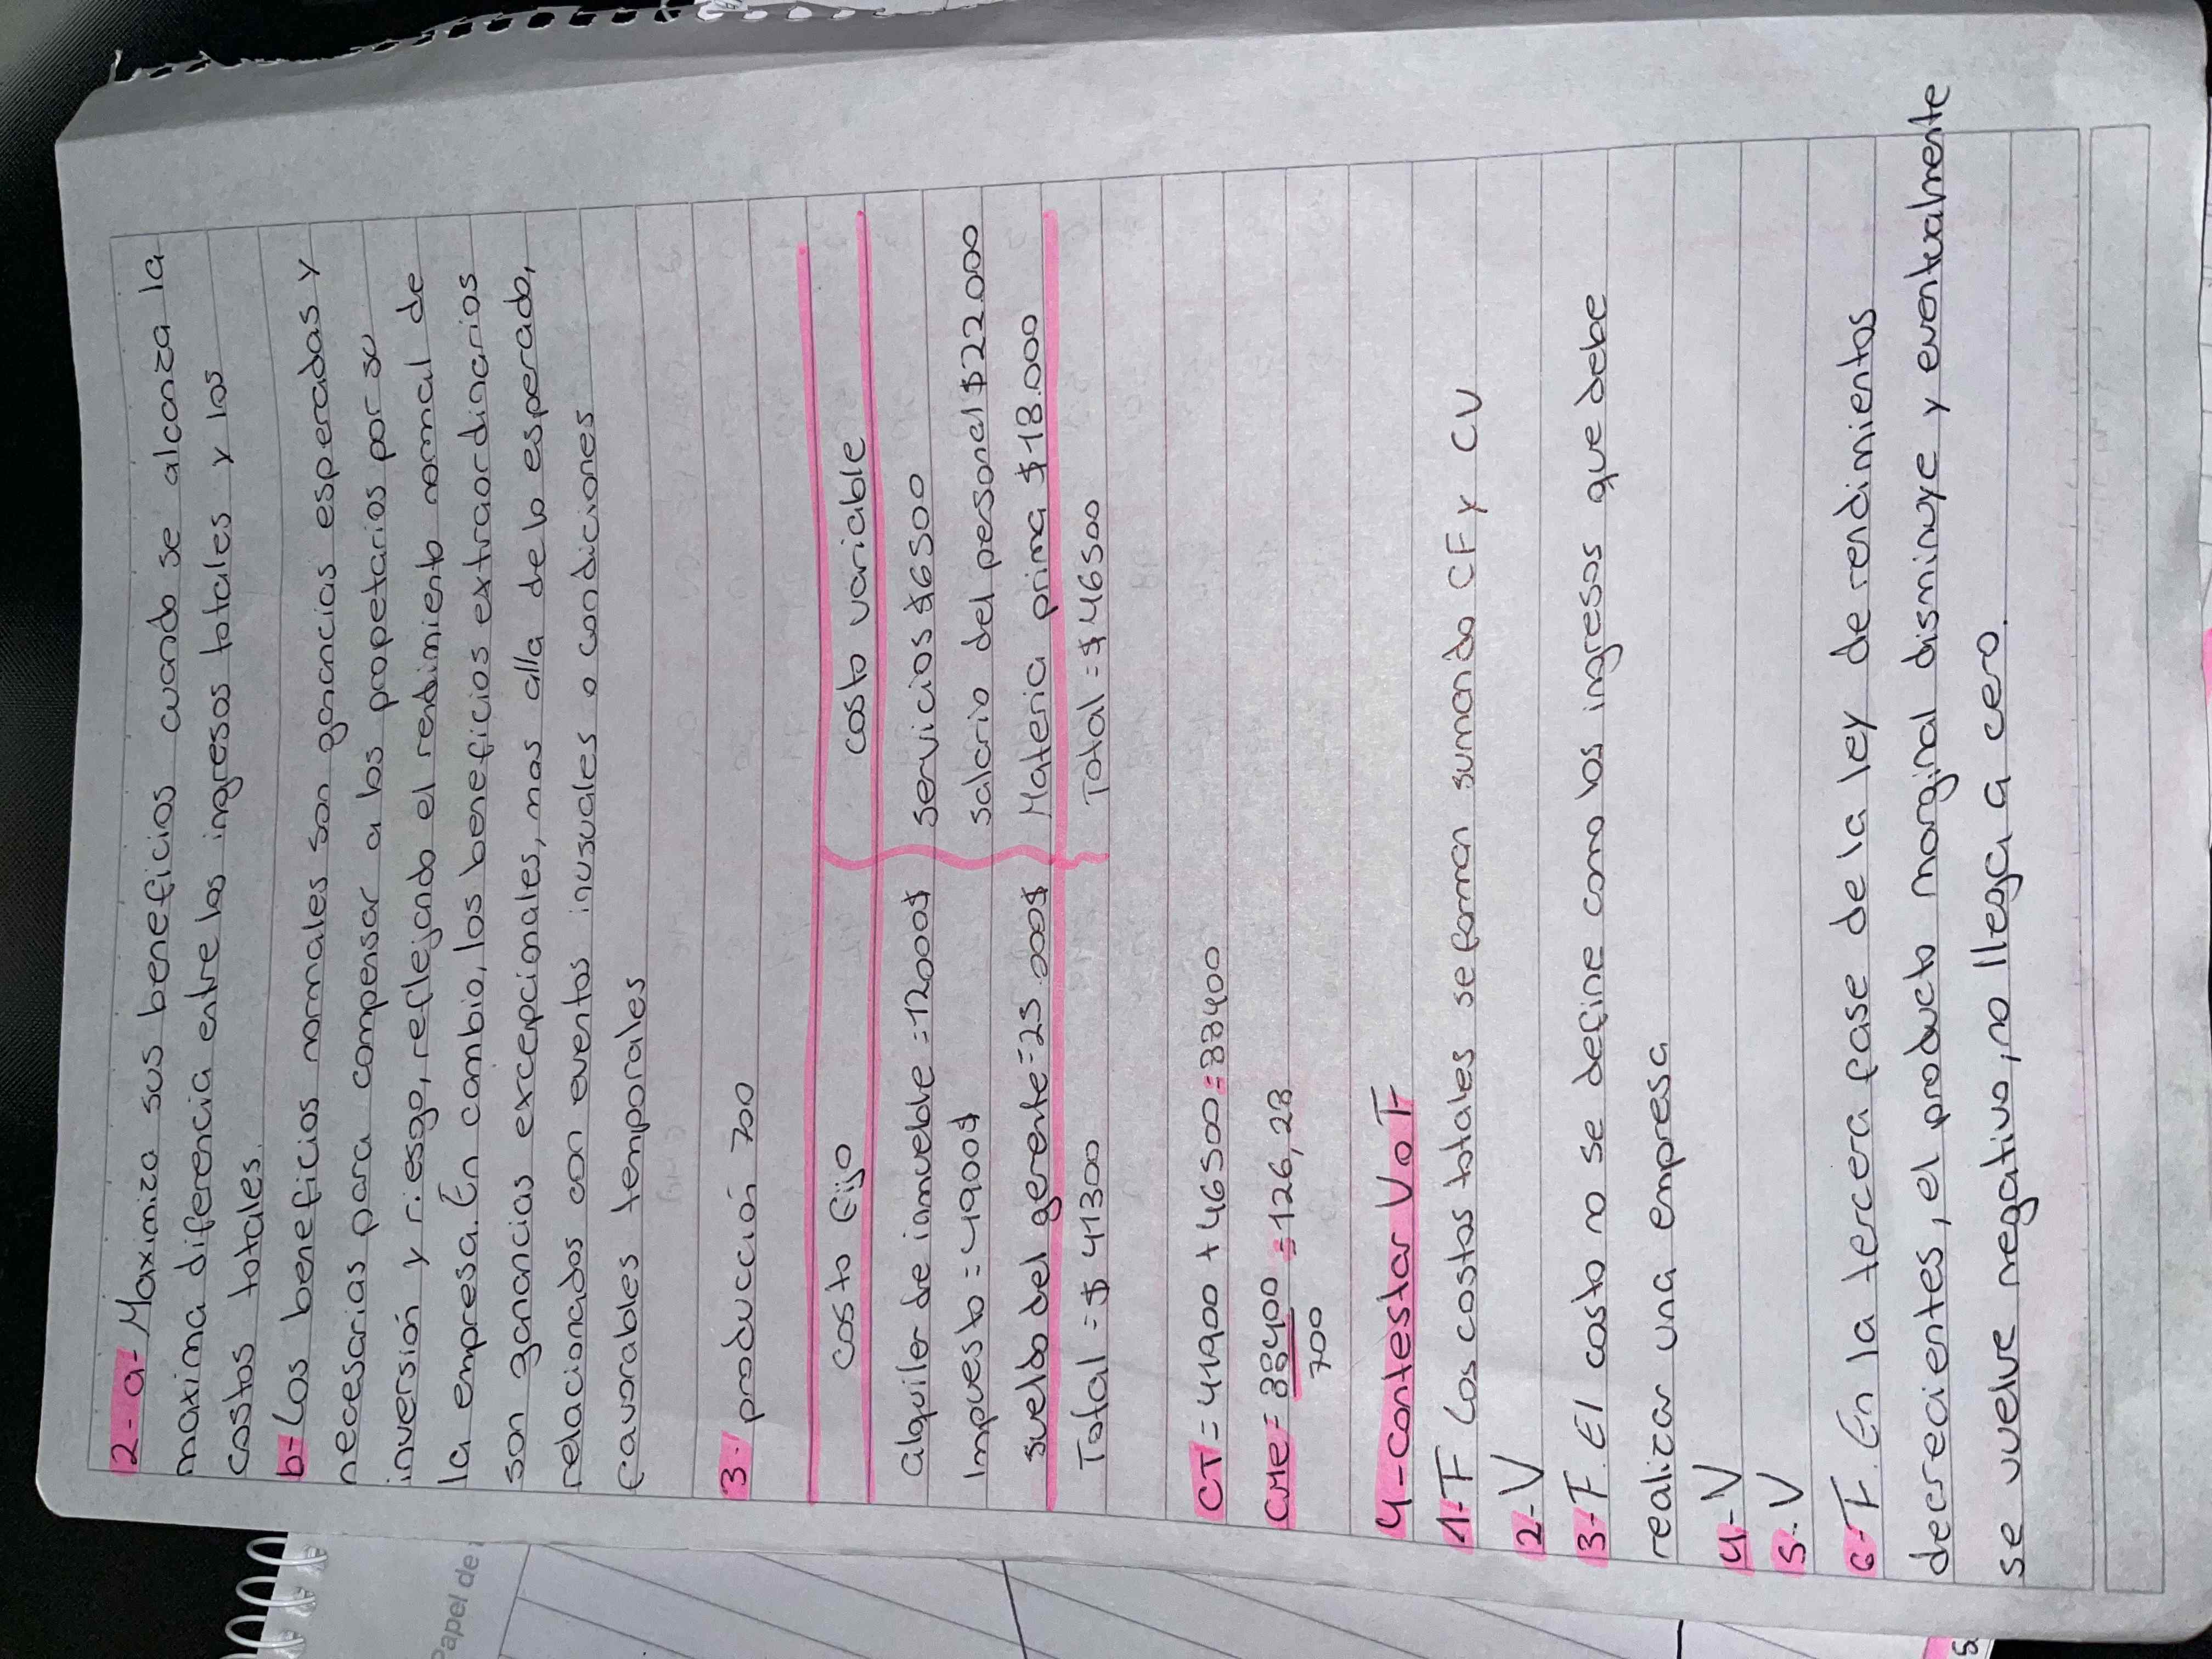 2-a- Maximiza sus beneficios cuando se alcanza la
maxima diferencia entre los ingresos totales y los
costos totales.
b- Los beneficios normales son ganancias esperadas y
necesarias para compensar a los propetarios por su
inversión y riesgo, reflejando el rendimiento normal de
la empresa. En cambio, los beneficios extraordinarios
son ganancias excepcionales, mas alla de lo esperado,
relacionados con eventos inusuales o condiciones
favorables temporales
3- producción 700
costo fijo costo variable
alquiler de inmueble = 12000$ servicios $6500
Impuesto = 4900$ salario del personal $22.000
sueldo del gerente = 25.000$ Materia prima $18.000
Total = $ 41300 Total = $ 46500
CT = 41900 + 46500 = 88400
CME = 88400 = 126,28
700
4-contestar V o F
1-F Los costos totales se forman sumando CF y CV
2-V
3-F. El costo no se define como los ingresos que debe
realizar una empresa
4-V
5-V
6-F. En la tercera fase de la ley de rendimientos
decrecientes, el producto marginal disminuye y eventualmente
se vuelve negativo, no llega a cero.
Papel de